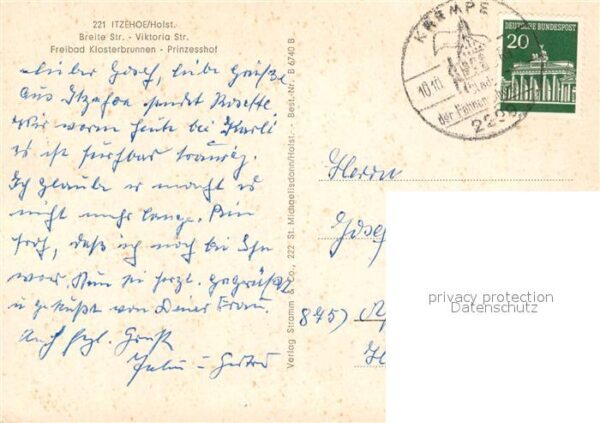 221 ITZEHOE/Holst.
Breite Str. - Viktoria Str.
Freibad Klosterbrunnen - Prinzesshof
Lieber Josef, liebe Grüße
aus Itzehoe sendet
Wir waren heute bei Karli
es ist furchbar traurig.
Ich glaube er macht es
nicht mehr lange. Bin
froh, daß ich noch bei Ihm
war. Nun sei herzl. gegrüßt
u geküßt von Deiner Frau.
Auch hzl. Gruß
Verlag Stramm & Co., 222 St. Michaelisdonn/Holst. Best.-Nr. B 6740 B
KREMPE
10.10.
der Fahnen
DEUTSCHE BUNDESPOST
20
Herrn
Josef
845)
privacy protection
Datenschutz